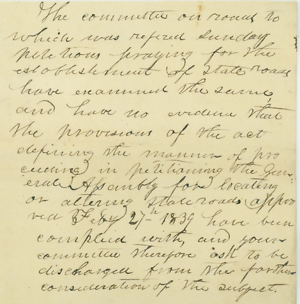 The committee on roads to
which was refered sunday
petitions praying for the
establishment of state roads
have examined the same
and have no evidence that
the provisions of the act
defining the manner of pro
ceeding in petitioning the Gen
eral Assembly for locating
or altering state roads appro
ved Feby 27th 1839 have been
complied with, and your
committee therefore ask to be
discharged from the further
consideration of the subject.